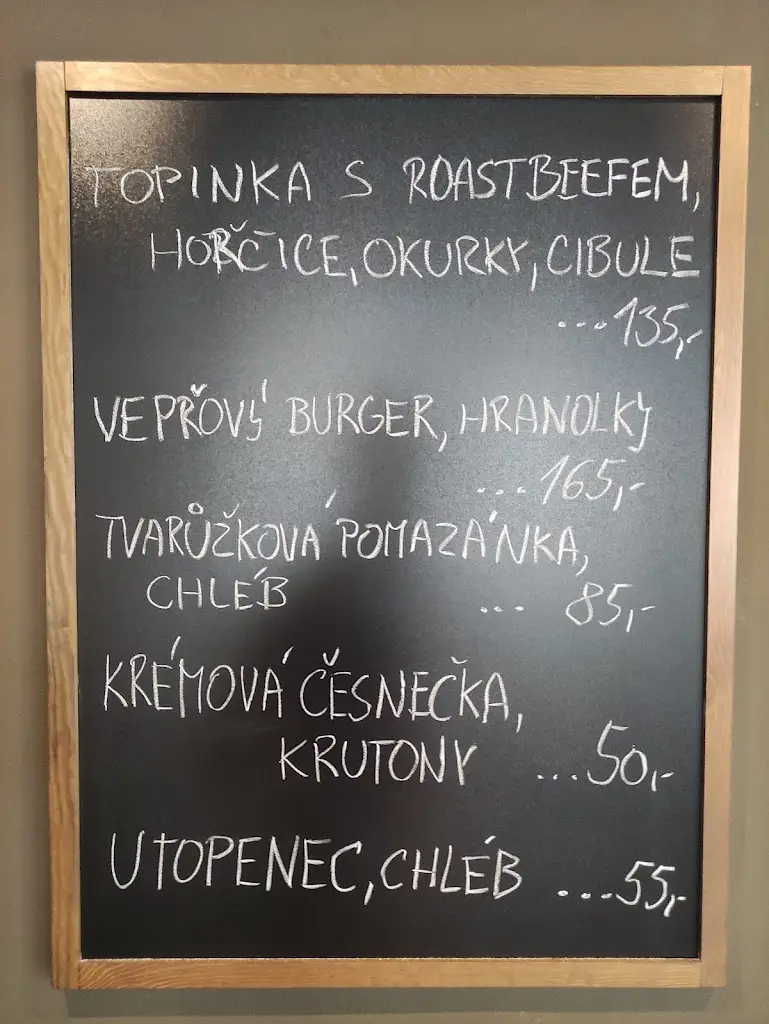 TOPINKA S ROASTBEEFEM,
HOŘČICE, OKURKY, CIBULE
...135,-
VEPŘOVÝ BURGER, HRANOLKY
...165,-
TVARŮŽKOVÁ POMAZÁNKA,
CHLÉB ... 85,-
KRÉMOVÁ ČESNEČKA,
KRUTONY ...50,-
UTOPENEC, CHLÉB ...55,-